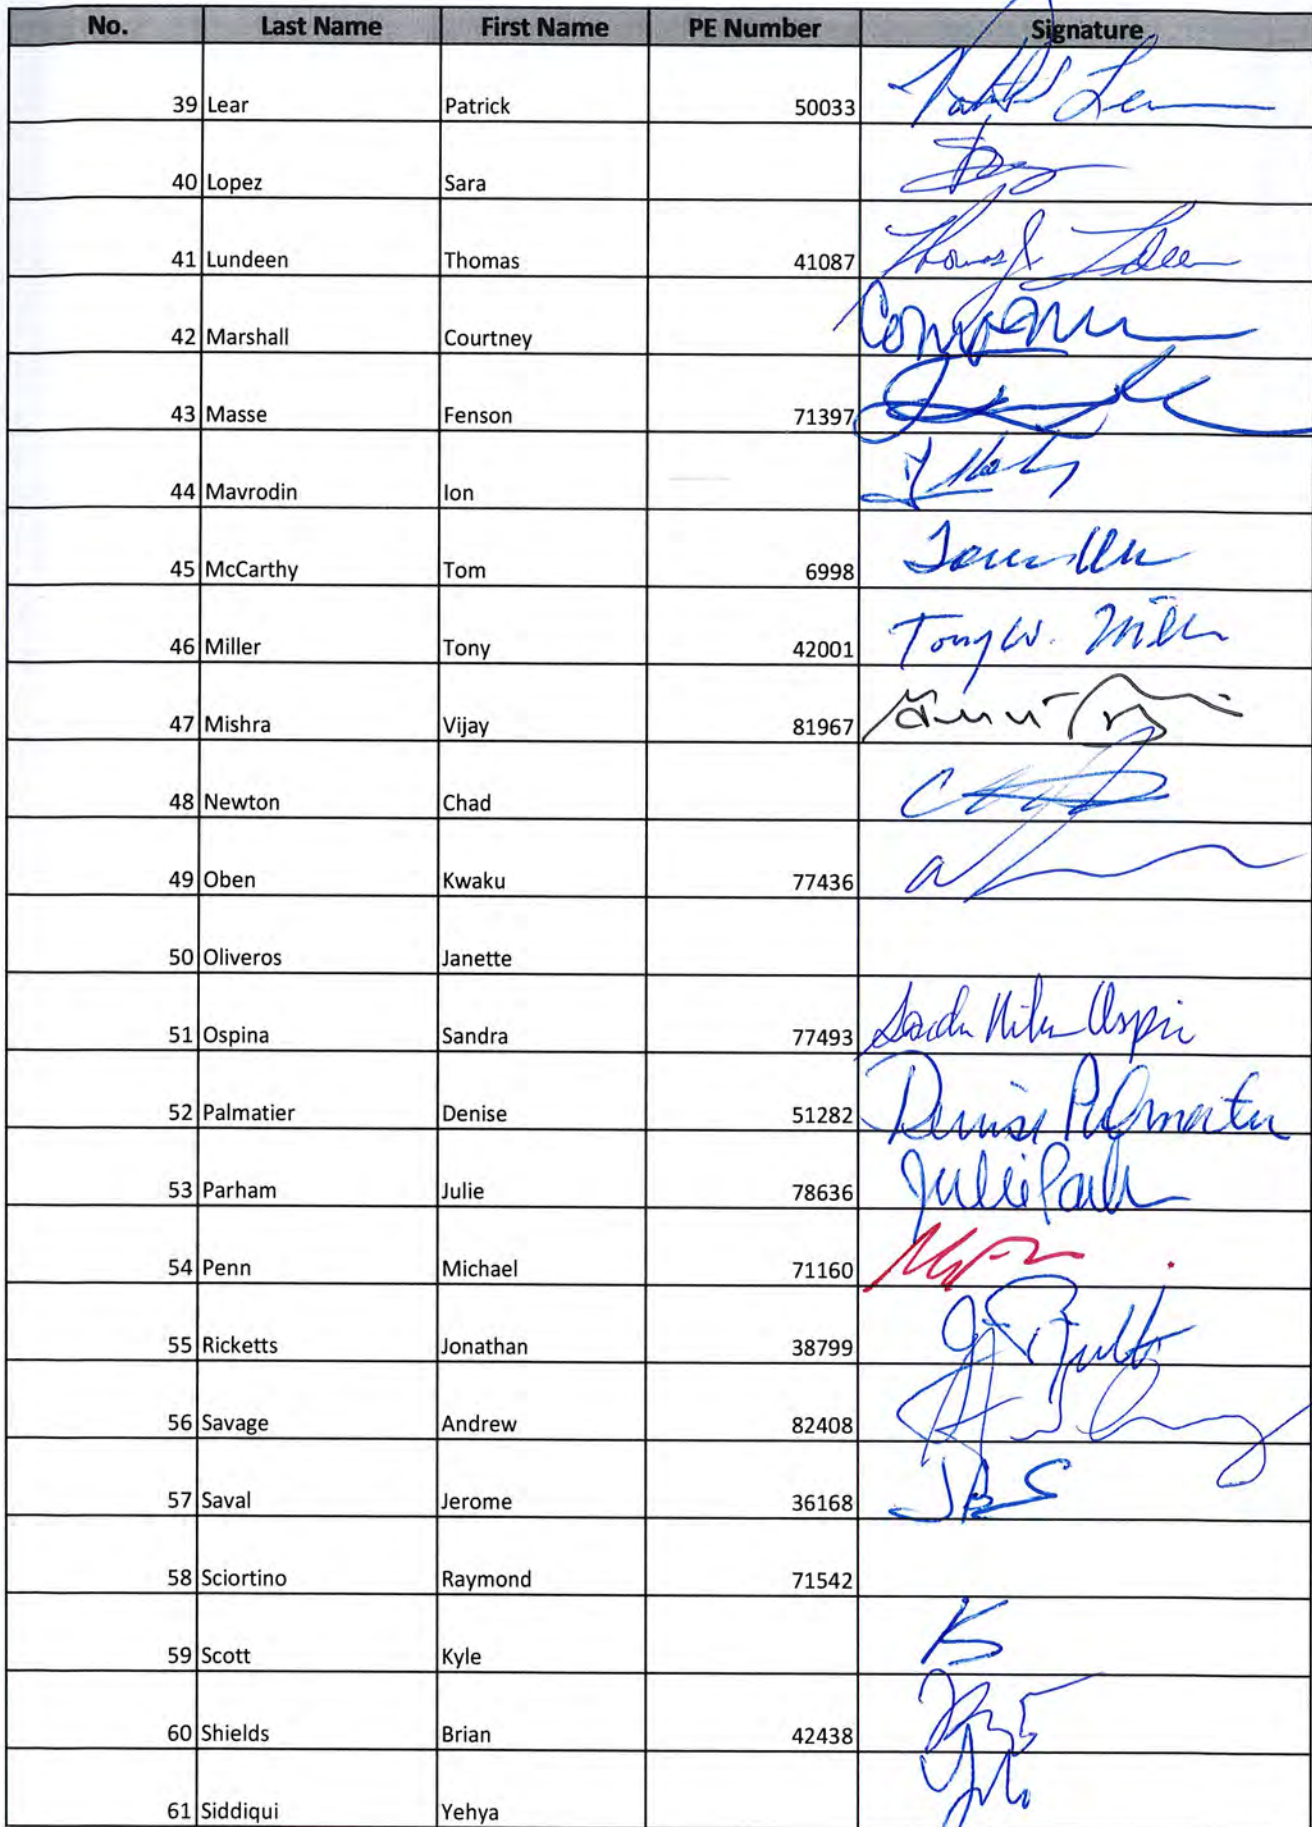 No. Last Name First Name PE Number Signature
39 Lear Patrick 50033
40 Lopez Sara
41 Lundeen Thomas 41087
42 Marshall Courtney
43 Masse Fenson 71397
44 Mavrodin Ion
45 McCarthy Tom 6998
46 Miller Tony 42001 Tony W. Miller
47 Mishra Vijay 81967
48 Newton Chad
49 Oben Kwaku 77436
50 Oliveros Janette
51 Ospina Sandra 77493
52 Palmatier Denise 51282 Denise Palmatier
53 Parham Julie 78636
54 Penn Michael 71160
55 Ricketts Jonathan 38799
56 Savage Andrew 82408
57 Saval Jerome 36168
58 Sciortino Raymond 71542
59 Scott Kyle
60 Shields Brian 42438
61 Siddiqui Yehya